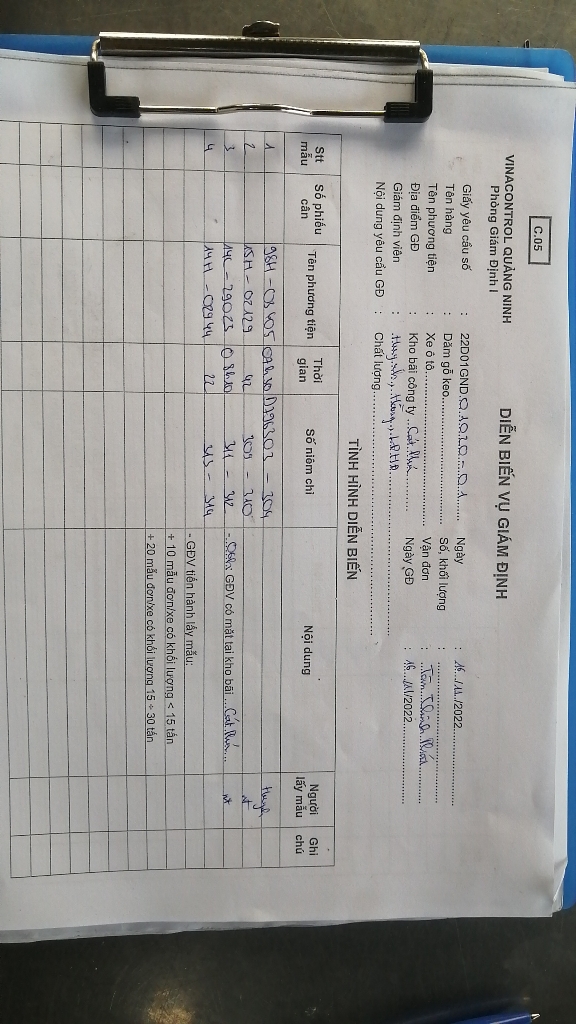 C.05
VINACONTROL QUẢNG NINH
Phòng Giám Định I
DIỄN BIẾN VỤ GIÁM ĐỊNH
Giấy yêu cầu số : 22D01GND.0.1920-01 Ngày : 16/11/2022
Tên hàng : Dăm gỗ keo Số, khối lượng :
Tên phương tiện : Xe ô tô Vận đơn : Tân Thịnh Phát
Địa điểm GĐ : Kho bãi công ty Cát Phú Ngày GĐ : 16/11/2022
Giám định viên :
Nội dung yêu cầu GĐ : Chất lượng
TÌNH HÌNH DIỄN BIẾN
Stt mẫu Số phiếu cân Tên phương tiện Thời gian Số niêm chì Nội dung Người lấy mẫu Ghi chú
1 98H-03405 07h30 303-304
2 15H-02129 42 309-310 nt
3 14C-29023 08h10 311-312 GĐV có mặt tại kho bãi Cát Phú nt
4 14H-02944 22 313-314
- GĐV tiến hành lấy mẫu:
+ 10 mẫu đơn/xe có khối lượng < 15 tấn
+ 20 mẫu đơn/xe có khối lượng 15 ÷ 30 tấn